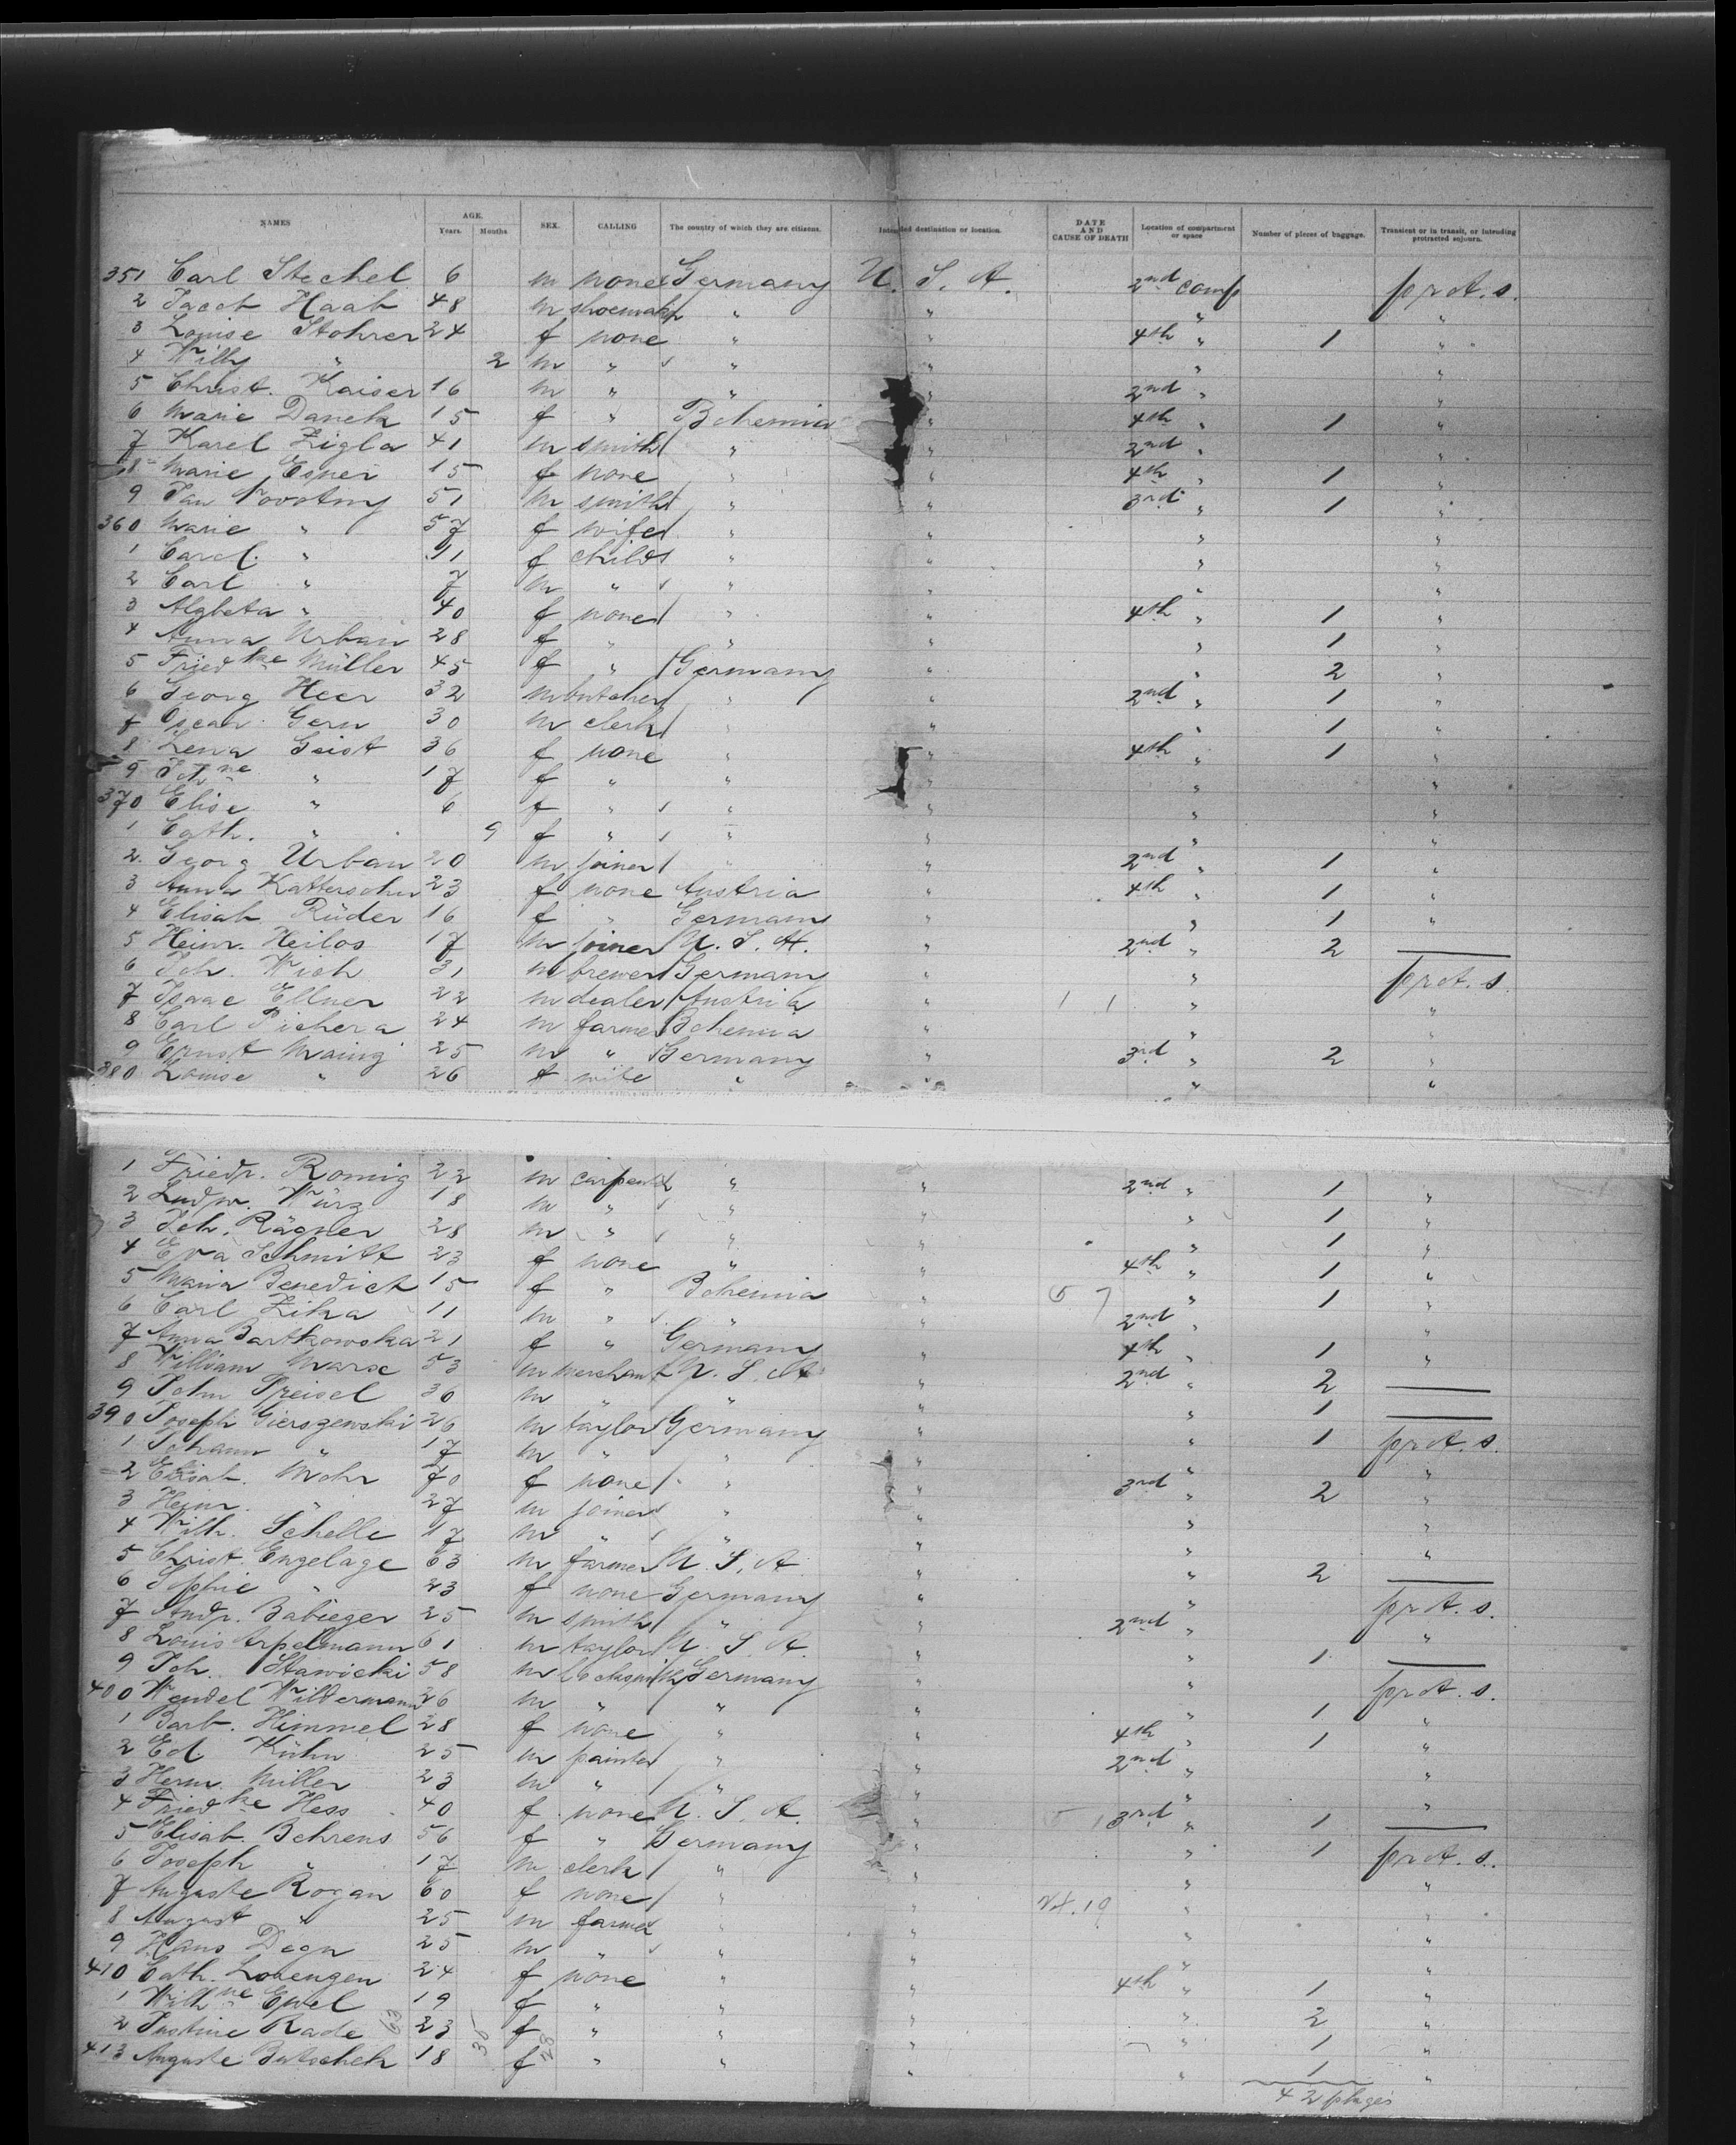 NAMES AGE. Years. Months SEX. CALLING The country of which they are citizens. Intended destination or location. DATE AND CAUSE OF DEATH Location of compartment or space Number of pieces of baggage. Transient or in transit, or intending protracted sojourn.
351 Carl Stechel 6 m none Germany U. S. A. 2nd comp prot. s.
2 Jacob Haab 48 m shoemakr " " " "
3 Louise Stohrer 24 f none " " 4th " 1 "
4 Willy " 2 m " " " " "
5 Christ. Kaiser 16 m " " " 2nd " "
6 Marie Danek 15 f " Bohemia " 4th " 1 "
7 Karel Zigla 41 m smith " " 2nd " "
8 Marie Esner 15 f none " " 4th " 1 "
9 Jan Novotny 51 m smith " " 3rd " 1 "
360 Marie " 57 f wife " " " "
1 Carol. " 11 f child " " " "
2 Carl " 7 m " " " " "
3 Algbeta " 40 f none " " 4th " 1 "
4 Anna Urban 28 f " " " " 1 "
5 Friedke Müller 45 f " Germany " " 2 "
6 Georg Heer 32 m butcher " " 2nd " 1 "
7 Oscar Gern 30 m clerk " " " 1 "
8 Lena Geist 36 f none " " 4th " 1 "
9 " 17 f " " " " "
370 Elise " 6 f " " " " "
1 Cath. " 9 f " " " " "
2 Georg Urban 20 m joiner " " 2nd " 1 "
3 Anna Kattersohn 23 f none Austria " 4th " 1 "
4 Elisab. Rüder 16 f " Germany " " 1 "
5 Heinr. Heilos 17 m joiner U. S. A. " 2nd " 2 —
6 Joh. Wich 31 m brewer Germany " " prot. s.
7 Isaac Ellner 22 m dealer Austria " " "
8 Carl Pichera 24 m farmer Bohemia " " "
9 Ernst Maing 25 m " Germany " 3rd " 2 "
380 Louise " 26 f wife " " " "
1 Friedr. Romig 22 m carpent " " 2nd " 1 "
2 Ludw. Würz 18 m " " " " 1 "
3 Joh. Rägner 28 m " " " " 1 "
4 Eva Schmitt 23 f none " " 4th " 1 "
5 Maria Benedict 15 f " Bohemia " " 1 "
6 Carl Zika 11 m " " " 2nd " "
7 Anna Bartkowska 21 f " Germany " 4th " 1 "
8 William Marx 53 m merchant U. S. A. " 2nd " 2 —
9 John Preisel 30 m " " " " 1 —
390 Joseph Gierszewski 26 m taylor Germany " " 1 prot. s.
1 Johann " 17 m " " " " "
2 Elisab. Mohr 70 f none " " 3rd " 2 "
3 Heinr. " 27 m joiner " " " "
4 Wilh. Schelle 17 m " " " " "
5 Christ. Engelage 63 m farmer U. S. A. " " 2 —
6 Sophie " 23 f none Germany " " prot. s.
7 Andr. Babieger 25 m smith " " 2nd " "
8 Louis Arpelmann 61 m taylor U. S. A. " " 1 —
9 Joh. Stawicki 58 m locksmith Germany " " prot. s.
400 Wendel Wildermann 26 m " " " " 1 "
1 Barb. Himmel 28 f none " " 4th " 1 "
2 Ed. Kühn 25 m painter " " 2nd " "
3 Herm. Miller 23 m " " " " "
4 Friedke Hess 40 f none U. S. A. " 3rd " 1 —
5 Elisab. Behrens 56 f " Germany " " 1 prot. s.
6 Joseph " 17 m clerk " " " "
7 Auguste Rogan 60 f none " " " "
8 August " 25 m farmer " " " "
9 Hans Degn 25 m " " " " "
410 Cath. Lorengen 24 f none " " 4th " 1 "
1 Wilhne Epel 19 f " " " " 2 "
2 Justine Rade 23 f " " " " 1 "
413 Auguste Batschek 18 f " " " " 1 "
63 35 28
42